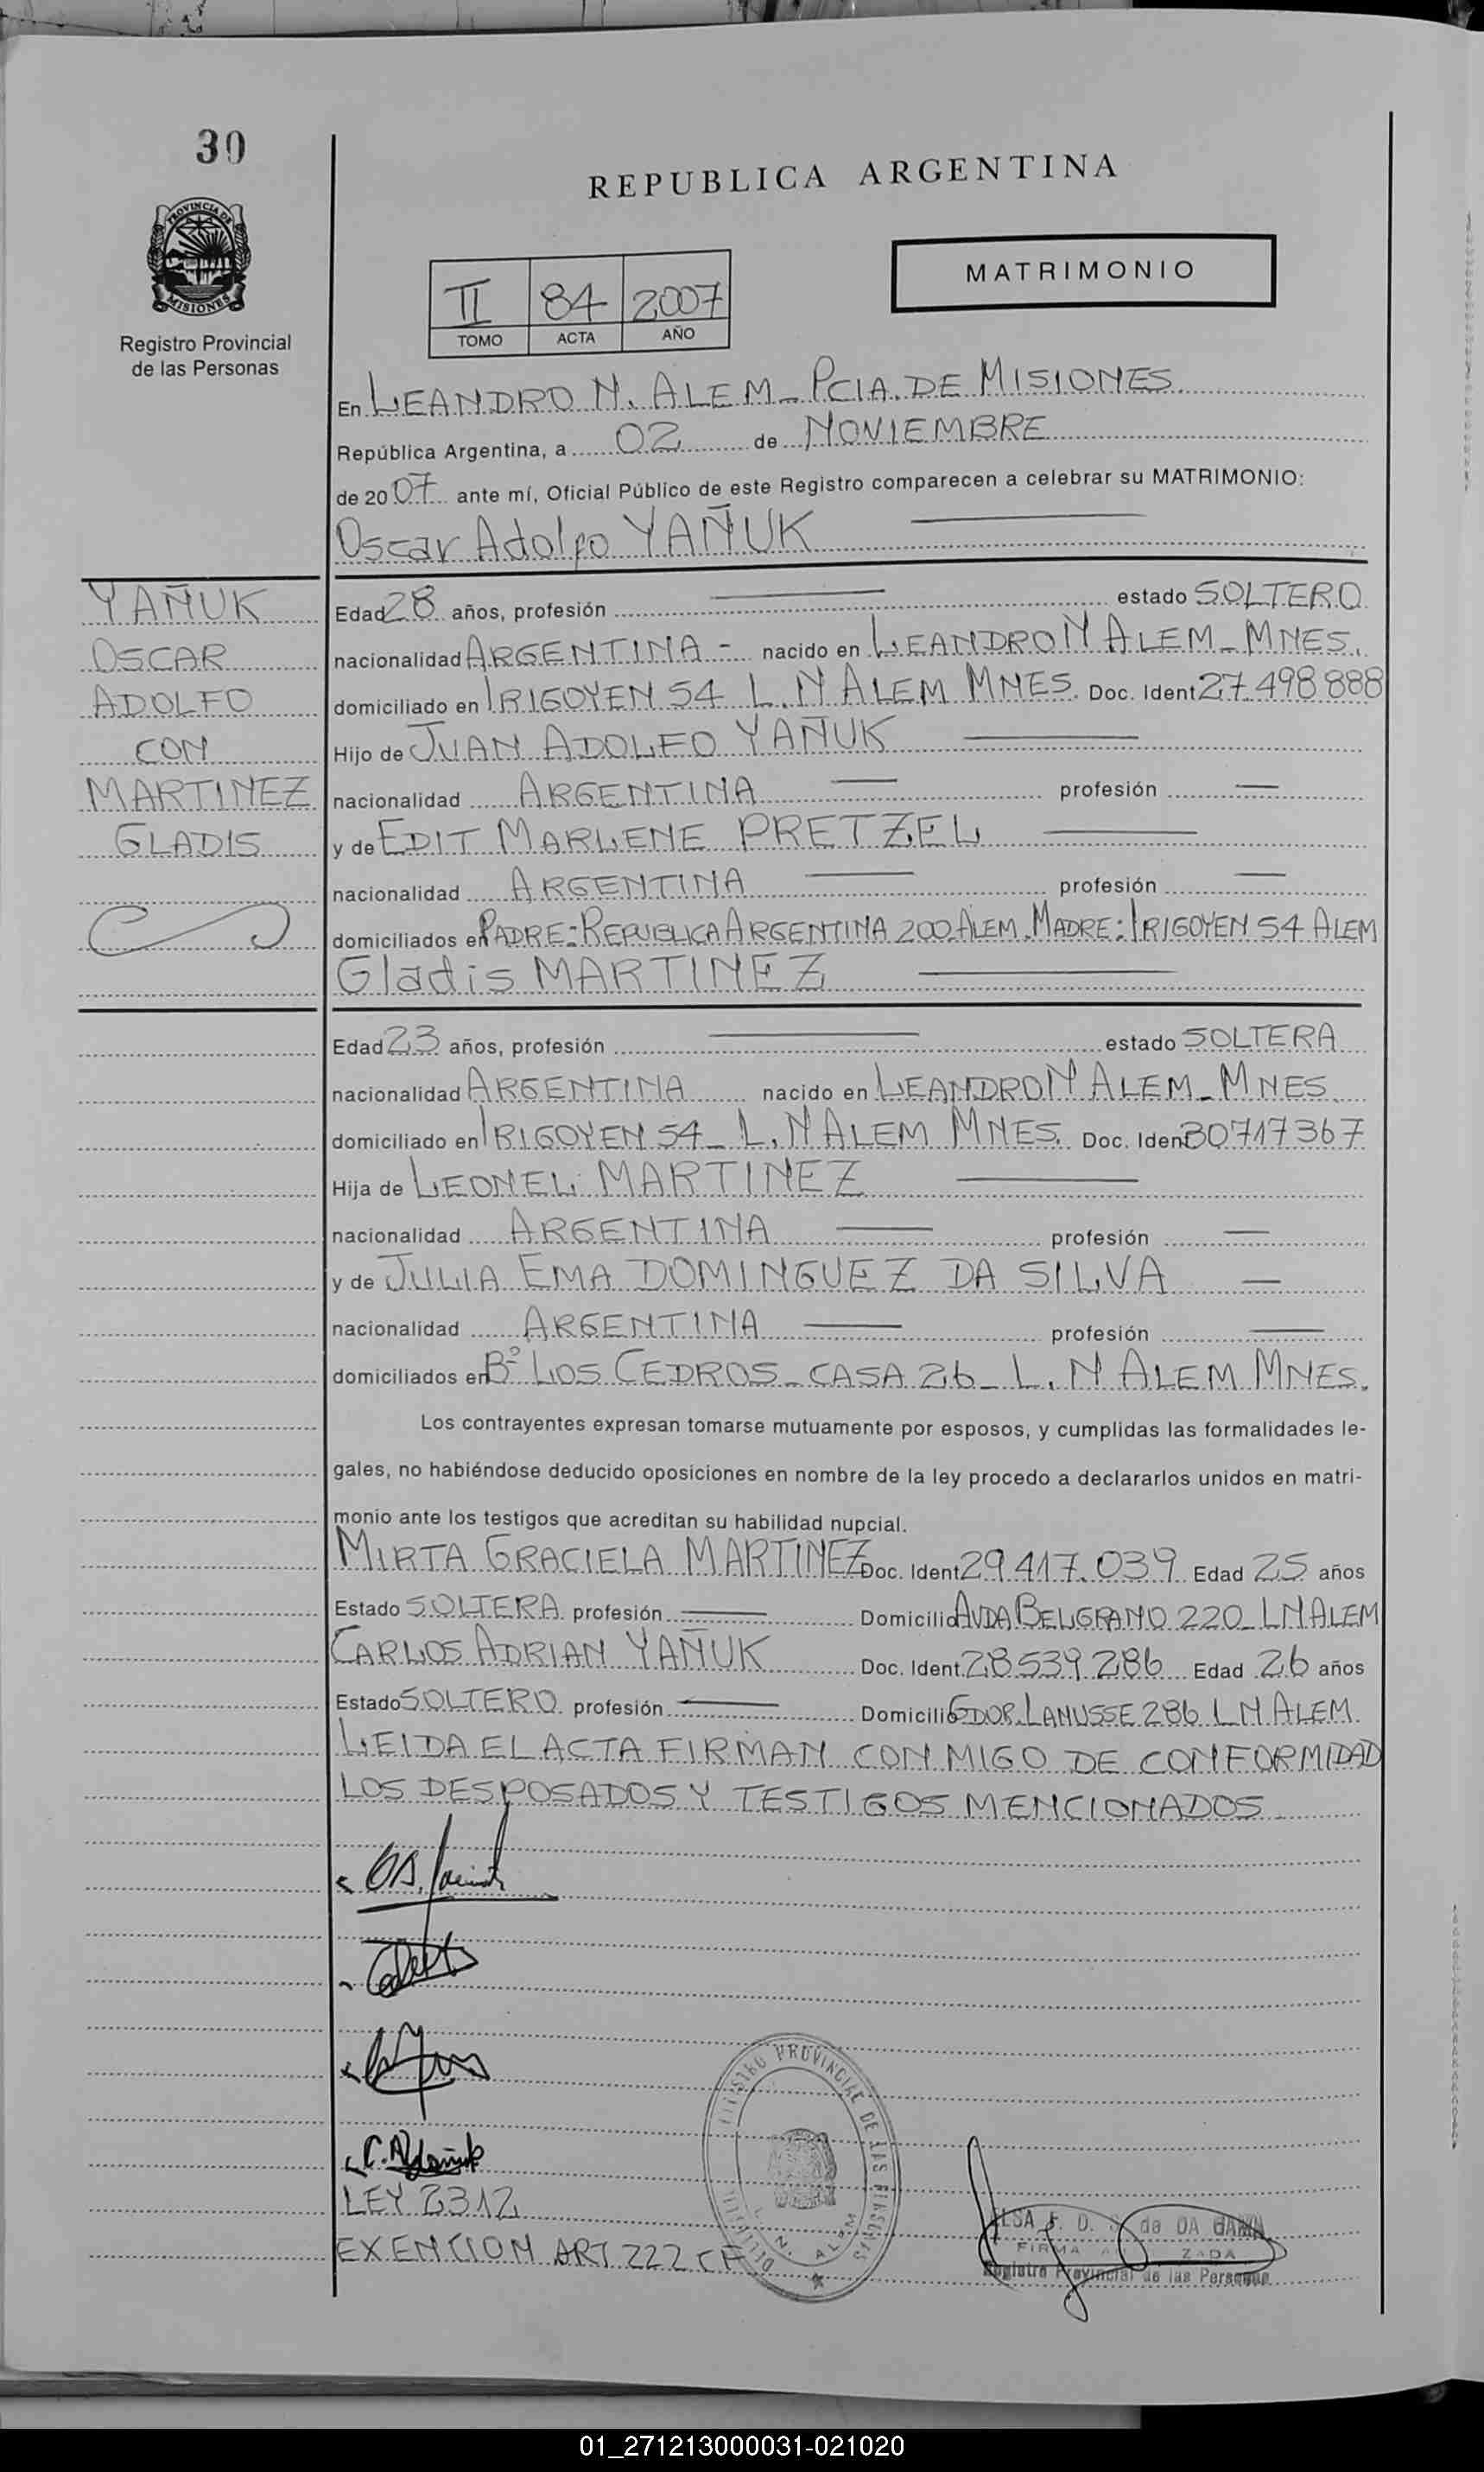 30
REPUBLICA ARGENTINA
PROVINCIA DE
MISIONES
Registro Provincial
de las Personas
MATRIMONIO
II 84 2007
TOMO ACTA AÑO
En LEANDRO N. ALEM - PCIA. DE MISIONES
República Argentina, a 02 de NOVIEMBRE
de 2007 ante mí, Oficial Público de este Registro comparecen a celebrar su MATRIMONIO:
Oscar Adolfo YAÑUK
YAÑUK
OSCAR
ADOLFO
CON
MARTINEZ
GLADIS
Edad 28 años, profesión — estado SOLTERO
nacionalidad ARGENTINA - nacido en LEANDRO N ALEM - MNES.
domiciliado en IRIGOYEN 54 L. N ALEM MNES. Doc. Ident 27.498.888
Hijo de JUAN ADOLFO YAÑUK —
nacionalidad ARGENTINA — profesión —
y de EDIT MARLENE PRETZEL —
nacionalidad ARGENTINA — profesión —
domiciliados en PADRE: REPUBLICA ARGENTINA 200 ALEM. MADRE: IRIGOYEN 54 ALEM
Gladis MARTINEZ —
Edad 23 años, profesión — estado SOLTERA
nacionalidad ARGENTINA nacido en LEANDRO N ALEM - MNES.
domiciliado en IRIGOYEN 54 - L. N ALEM MNES. Doc. Ident 30717367
Hija de LEONEL MARTINEZ —
nacionalidad ARGENTINA — profesión —
y de JULIA EMA DOMINGUEZ DA SILVA —
nacionalidad ARGENTINA — profesión —
domiciliados en Bº LOS CEDROS - CASA 26 - L. N ALEM MNES.
Los contrayentes expresan tomarse mutuamente por esposos, y cumplidas las formalidades le-
gales, no habiéndose deducido oposiciones en nombre de la ley procedo a declararlos unidos en matri-
monio ante los testigos que acreditan su habilidad nupcial.
MIRTA GRACIELA MARTINEZ Doc. Ident 29.417.039 Edad 25 años
Estado SOLTERA profesión — Domicilio AVDA BELGRANO 220 - LN ALEM
CARLOS ADRIAN YAÑUK Doc. Ident. 28539286 Edad 26 años
Estado SOLTERO profesión — Domicilio GDOR. LANUSSE 286 LN ALEM
LEIDA EL ACTA FIRMAN CON MIGO DE CONFORMIDAD
LOS DESPOSADOS Y TESTIGOS MENCIONADOS
LEY 2312
EXENCION ART 222 CF
REGISTRO PROVINCIAL DE LAS PERSONAS
L. N. ALEM
ELSA F. D. de DA
FIRMA
Registro Provincial de las Personas
01_271213000031-021020